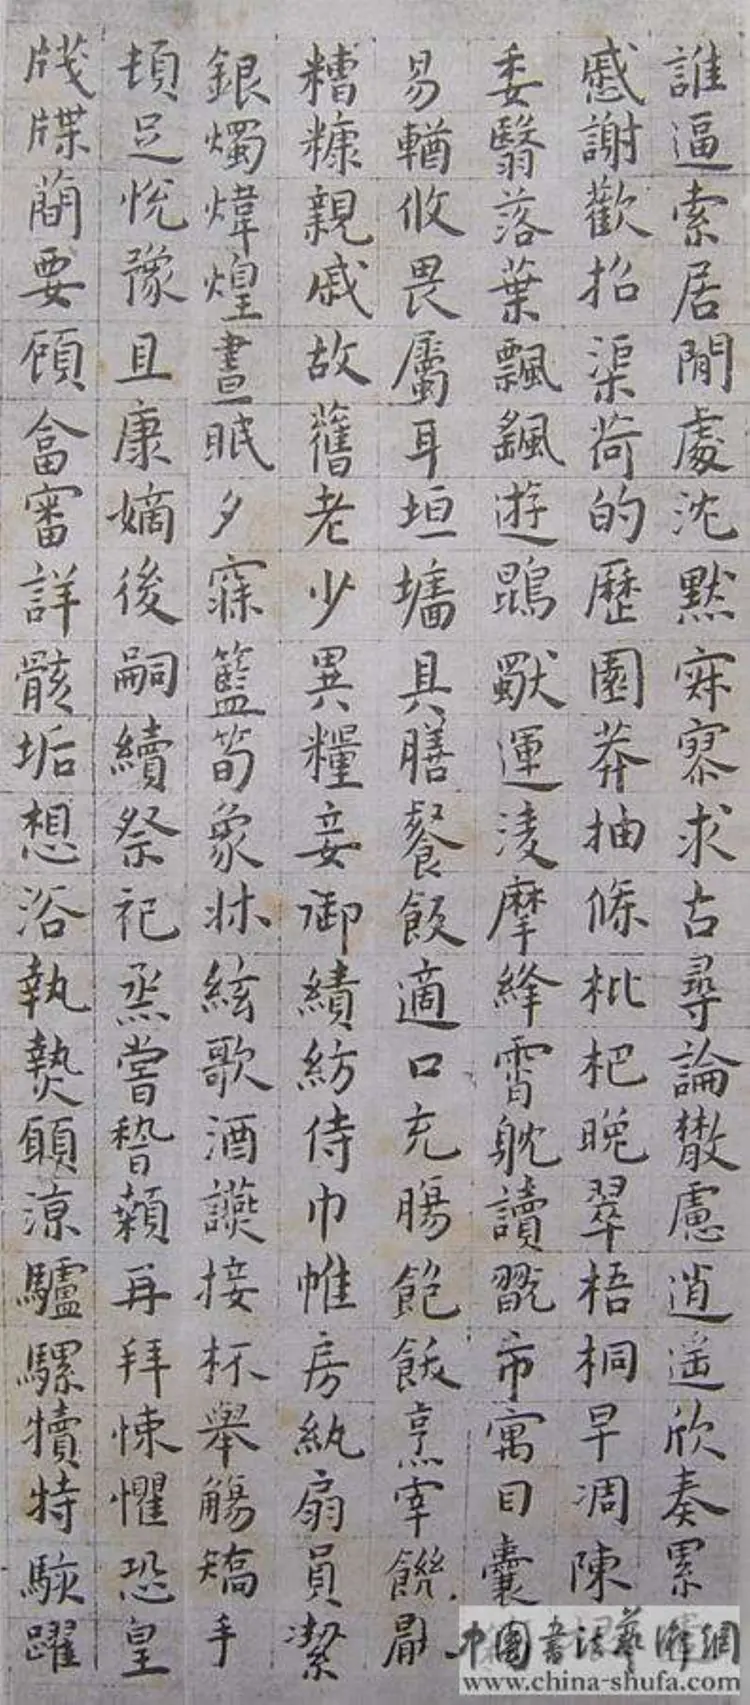 誰逼索居閒處沈默寂寥求古尋論散慮逍遙欣奏累
慼謝歡招渠荷的歷園莽抽條枇杷晚翠梧桐早凋陳
委翳落葉飄颻遊鵾獨運淩摩絳霄耽讀翫市寓目囊
易輶攸畏屬耳垣墻具膳餐飯適口充腸飽飫烹宰饑厭
糟糠親戚故舊老少異糧妾御績紡侍巾帷房紈扇員潔
銀燭煒煌晝眠夕寐籃筍象牀絃歌酒讌接杯舉觴矯手
頓足悅豫且康嫡後嗣續祭祀烝嘗稽顙再拜悚懼恐皇
牋牒簡要顧答審詳骸垢想浴執熱願涼驢騾犢特駭躍
中国书法艺术网
www.china-shufa.com